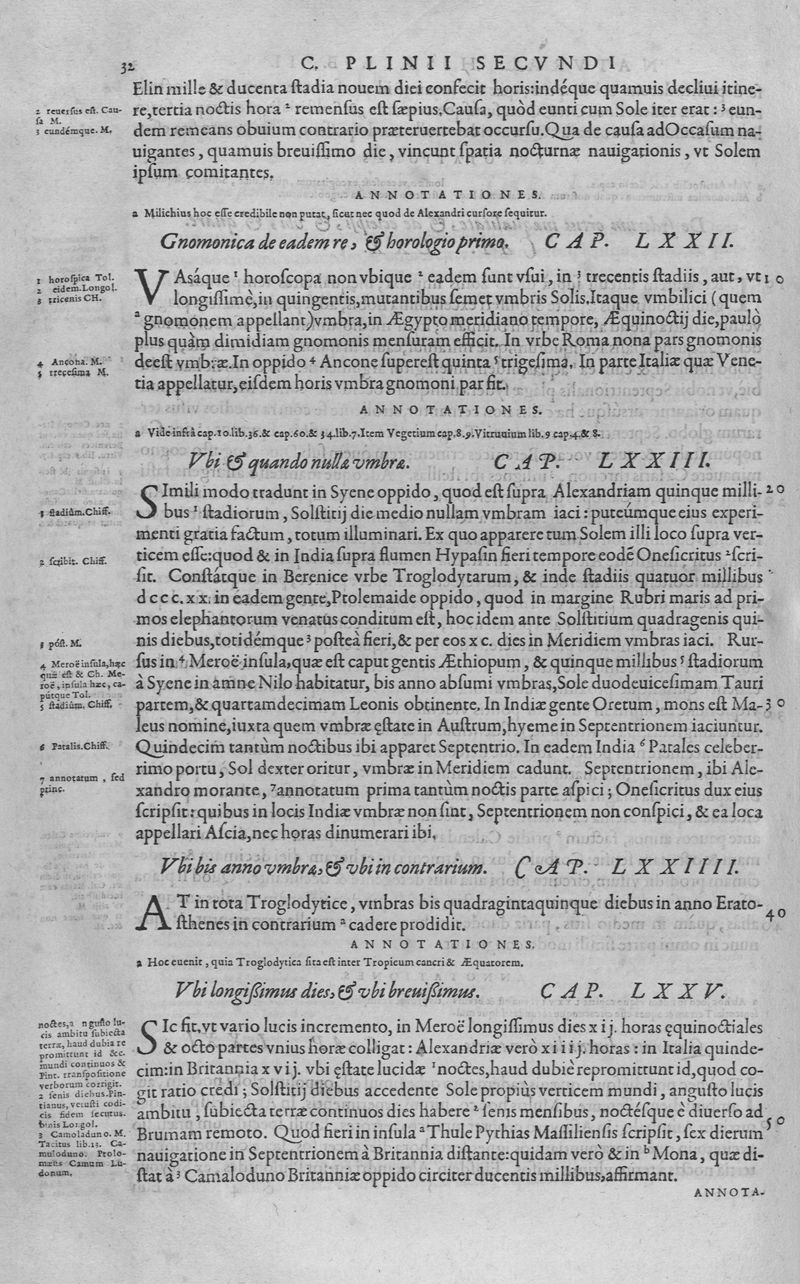 32
C. PLINII SECVNDI
Elin mille & ducenta ſtadia nouem diei confecit horis:indéque quamuis decliui itine-
re,tertia noctis hora ² remenſus eſt ſæpius.Cauſa, quòd eunti cum Sole iter erat : ³ eun-
dem remeans obuium contrario præteruertebat occurſu.Qua de cauſa ad Occaſum na-
uigantes, quamuis breuiſſimo die, vincunt ſpatia nocturnæ nauigationis, vt Solem
ipſum comitantes.
2 reuerſus eſt. Cau-
ſa M.
3 eundémque. M.
ANNOTATIONES.
a Milichius hoc eſſe credibile non putat, ſicut nec quod de Alexandri curſore ſequitur.
Gnomonica de eadem re, & horologio primo. CAP. LXXII.
VAsáque ¹ horoſcopa non vbique ² eadem ſunt vſui, in ³ trecentis ſtadiis, aut, vt 10
longiſſimè,in quingentis,mutantibus ſemet vmbris Solis.Itaque vmbilici (quem
ª gnomonem appellant)vmbra,in Ægypto meridiano tempore, Æquinoctij die,paulò
plus quàm dimidiam gnomonis menſuram efficit. In vrbe Roma nona pars gnomonis
deeſt vmbræ.In oppido ⁴ Ancone ſupereſt quinta ⁵ trigeſima. In parte Italiæ quæ Vene-
tia appellatur,eiſdem horis vmbra gnomoni par fit.
1 horoſpica Tol.
2 eidem.Longol.
3 tricenis CH.
4 Ancona. M.
5 treceſima M.
ANNOTATIONES.
a Vide infrà cap.10.lib.36.& cap.60.& 34.lib.7.Item Vegetium cap.8.9.Vitruuium lib.9 cap.4.& 8.
Vbi & quando nulla vmbra. CAP. LXXIII.
SImili modo tradunt in Syene oppido, quod eſt ſupra Alexandriam quinque milli- 20
bus ¹ ſtadiorum, Solſtitij die medio nullam vmbram iaci : puteúmque eius experi-
menti gratia factum, totum illuminari. Ex quo apparere tum Solem illi loco ſupra ver-
ticem eſſe:quod & in India ſupra flumen Hypaſin fieri tempore eodē Oneſicritus ² ſcri-
ſit. Conſtátque in Berenice vrbe Troglodytarum, & inde ſtadiis quatuor millibus
dccc.xx. in eadem gente,Ptolemaide oppido, quod in margine Rubri maris ad pri-
mos elephantorum venatus conditum eſt, hoc idem ante Solſtitium quadragenis qui-
nis diebus,totidémque ³ poſteà fieri,& per eos xc. dies in Meridiem vmbras iaci. Rur-
ſus in ⁴ Meroë inſula,quæ eſt caput gentis Æthiopum, & quinque millibus ⁵ ſtadiorum
à Syene in amne Nilo habitatur, bis anno abſumi vmbras,Sole duodeuiceſimam Tauri
partem,& quartamdecimam Leonis obtinente. In Indiæ gente Oretum, mons eſt Ma- 30
leus nomine,iuxta quem vmbræ ęſtate in Auſtrum,hyeme in Septentrionem iaciuntur.
Quindecim tantùm noctibus ibi apparet Septentrio. In eadem India ⁶ Patales celeber-
rimo portu, Sol dexter oritur, vmbræ in Meridiem cadunt. Septentrionem, ibi Ale-
xandro morante, ⁷annotatum prima tantùm noctis parte aſpici ; Oneſicritus dux eius
ſcripſit : quibus in locis Indiæ vmbræ non ſint, Septentrionem non conſpici, & ea loca
appellari Aſcia,nec horas dinumerari ibi.
1 ſtadiûm.Chiff.
2 ſcribit. Chiff.
3 póſt. M.
4 Meroë inſula,hæc
quæ eſt & Ch. Me-
roë, inſula hæc, ca-
pútque Tol.
5 ſtadiûm. Chiff.
6 Patalis.Chiff.
7 annotatum, ſed
princ.
Vbi bis anno vmbra, & vbi in contrarium. CAP. LXXIIII.
AT in tota Troglodytice, vmbras bis quadragintaquinque diebus in anno Erato- 40
ſthenes in contrarium ª cadere prodidit.
ANNOTATIONES.
a Hoc euenit, quia Troglodytica ſita eſt inter Tropicum cancri & Æquatorem.
Vbi longißimus dies, & vbi breuißimus. CAP. LXXV.
SIc fit,vt vario lucis incremento, in Meroë longiſſimus dies xij. horas ęquinoctiales
& octo partes vnius horæ colligat : Alexandriæ verò xiiij. horas : in Italia quinde-
cim:in Britannia xvij. vbi ęſtate lucidæ ¹noctes,haud dubiè repromittunt id,quod co-
git ratio credi ; Solſtitij diebus accedente Sole propiùs verticem mundi, anguſto lucis
ambitu, ſubiecta terræ continuos dies habere ² ſenis menſibus, noctéſque è diuerſo ad
Brumam remoto. Quod fieri in inſula ª Thule Pythias Maſſilienſis ſcripſit, ſex dierum 50
nauigatione in Septentrionem à Britannia diſtante:quidam verò & in ᵇ Mona, quæ di-
ſtat à ³ Camaloduno Britanniæ oppido circiter ducentis millibus,affirmant.
noctes,a nguſto lu-
cis ambitu ſubiecta
terræ, haud dubia re
promittunt id &c.
mundi continuos &
Pint. tranſpoſitione
verborum corrigit.
2 ſenis diebus.Pin-
tianus, vetuſti codi-
cis fidem ſecutus.
binis Longol.
3 Camoladuno. M.
Tacitus lib.12. Ca-
muloduno. Ptolo-
mæus Camum Lu-
donum.
ANNOTA-